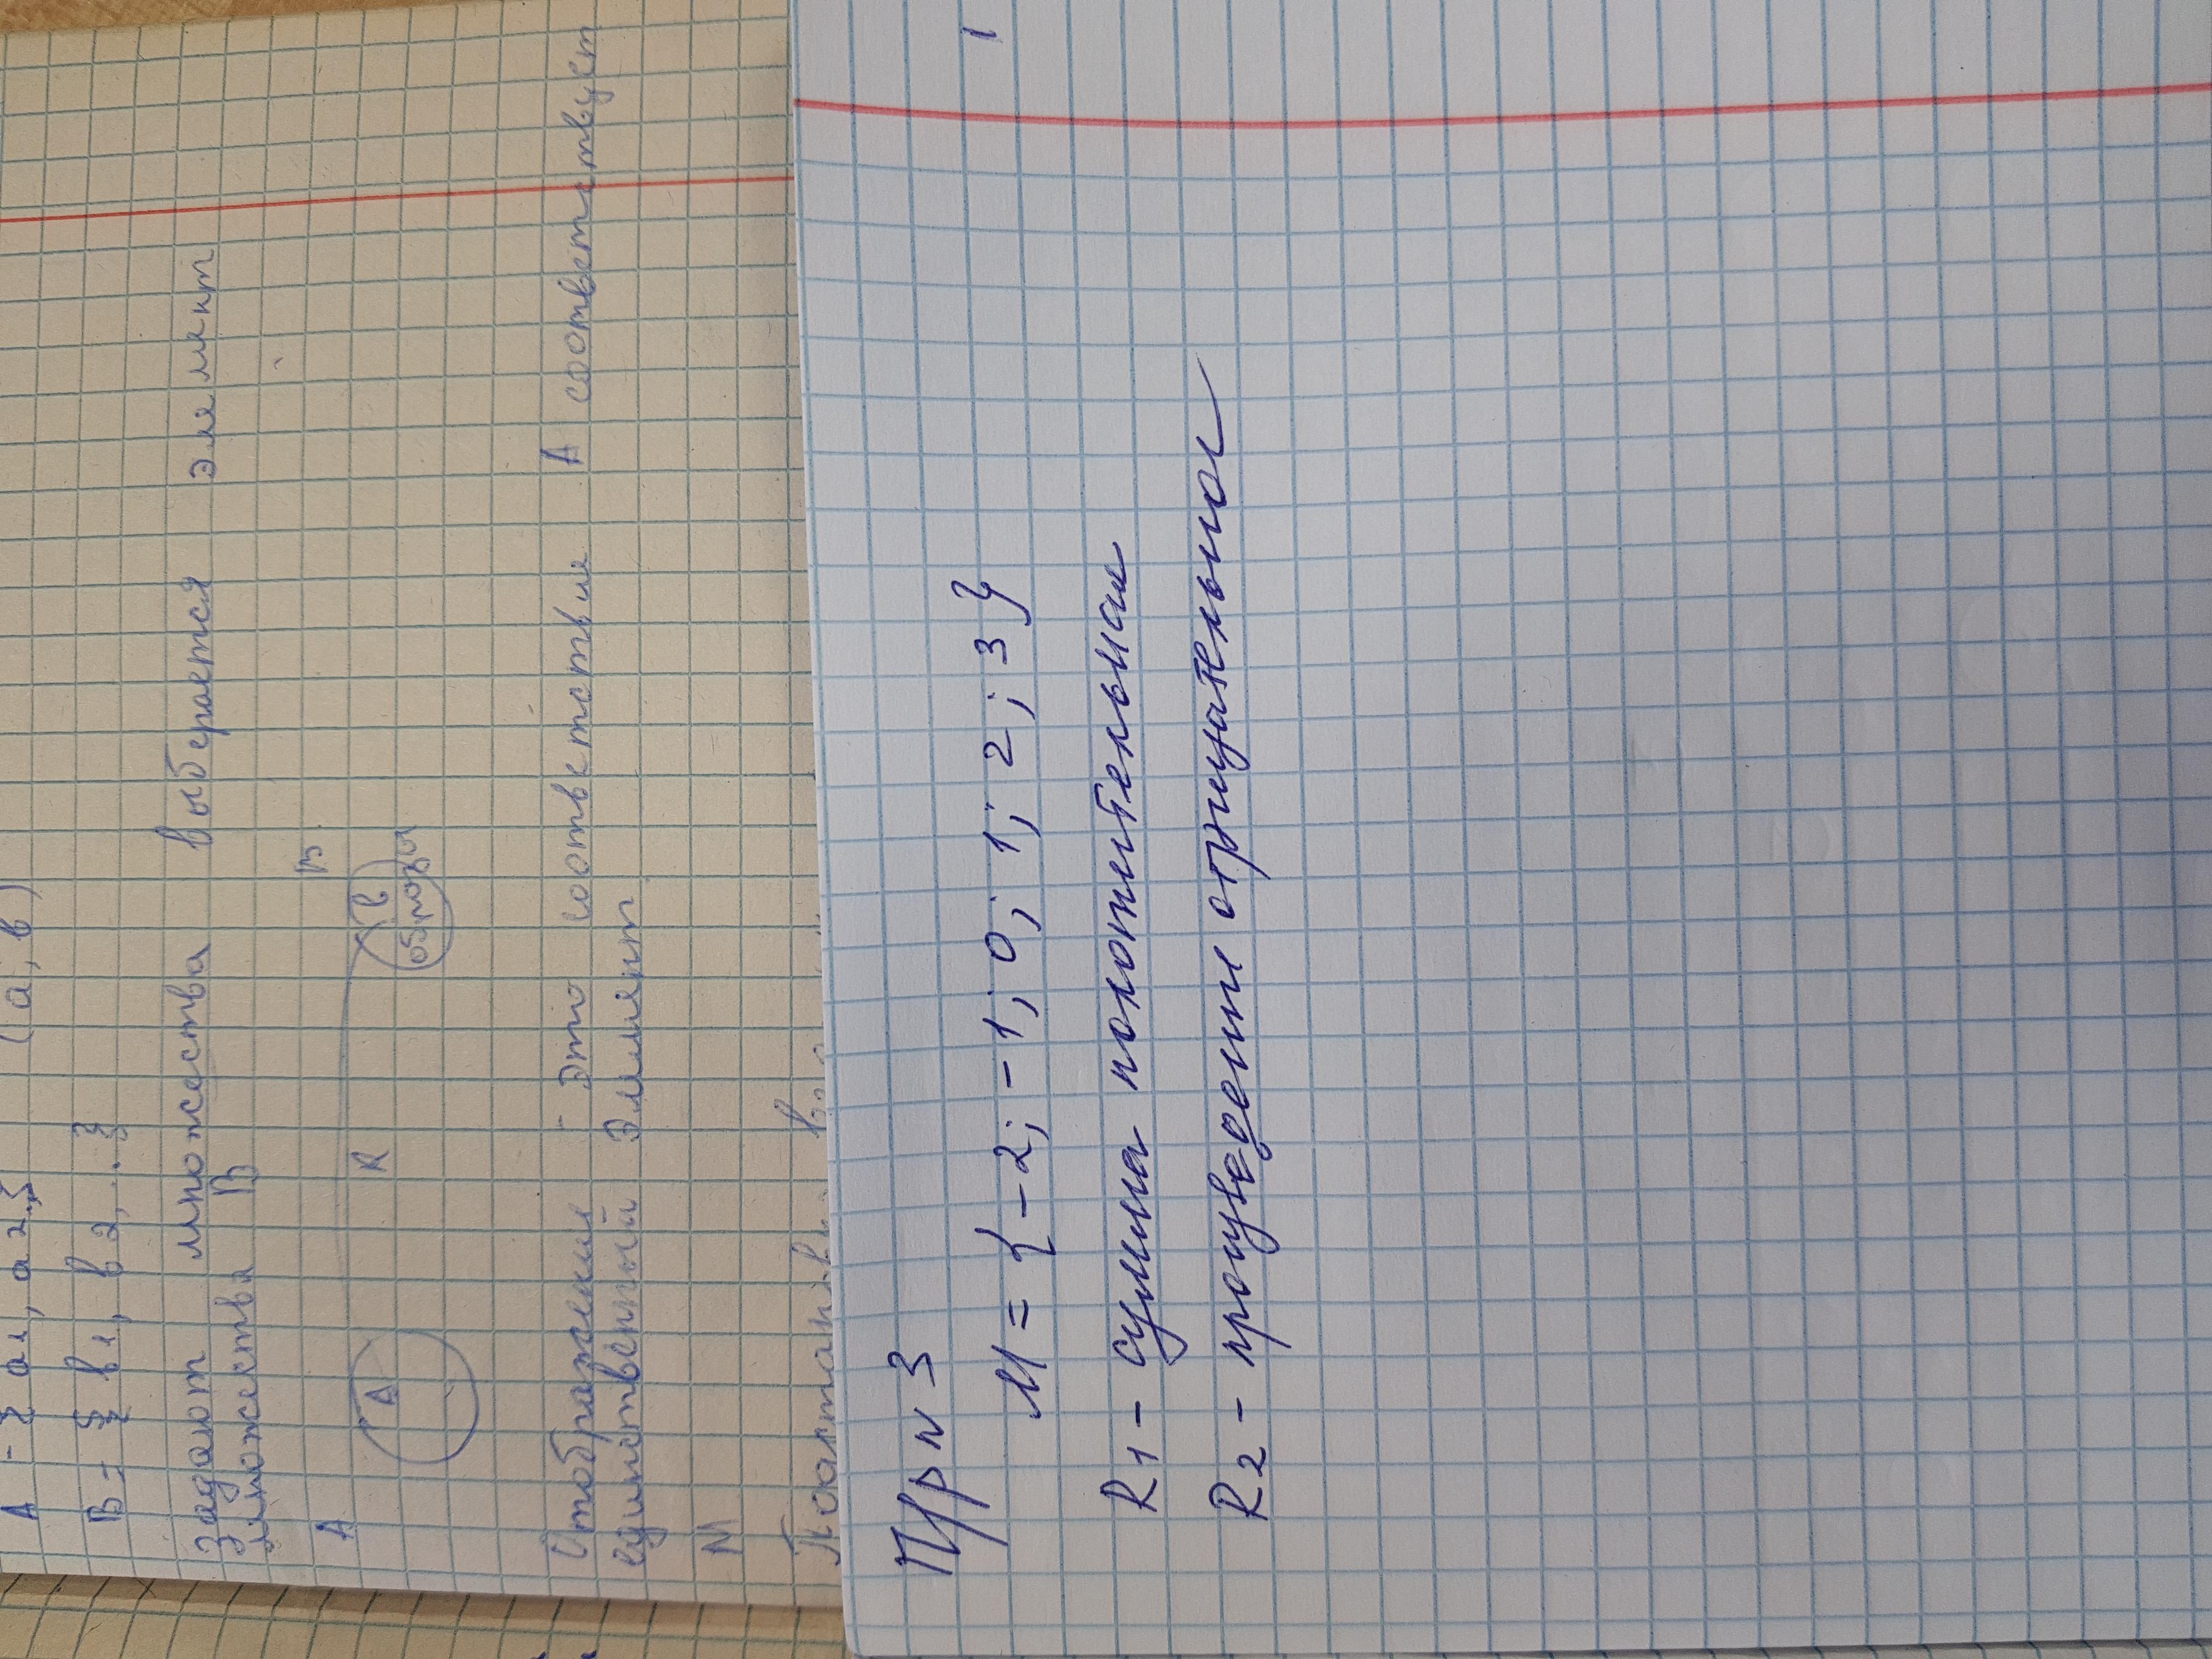 A - { a1, a2,}      (a, в)
B - { в1, в2, . . }
Задают множества выберается элемент
множества B
A      B
A   R   в
образы
Отображение - это соответствие A соответствует
единственный элемент
N
Пр n 3
M = { -2; -1; 0; 1; 2; 3 }
R1 - сумма положительная
R2 - произведение отрицательное
1